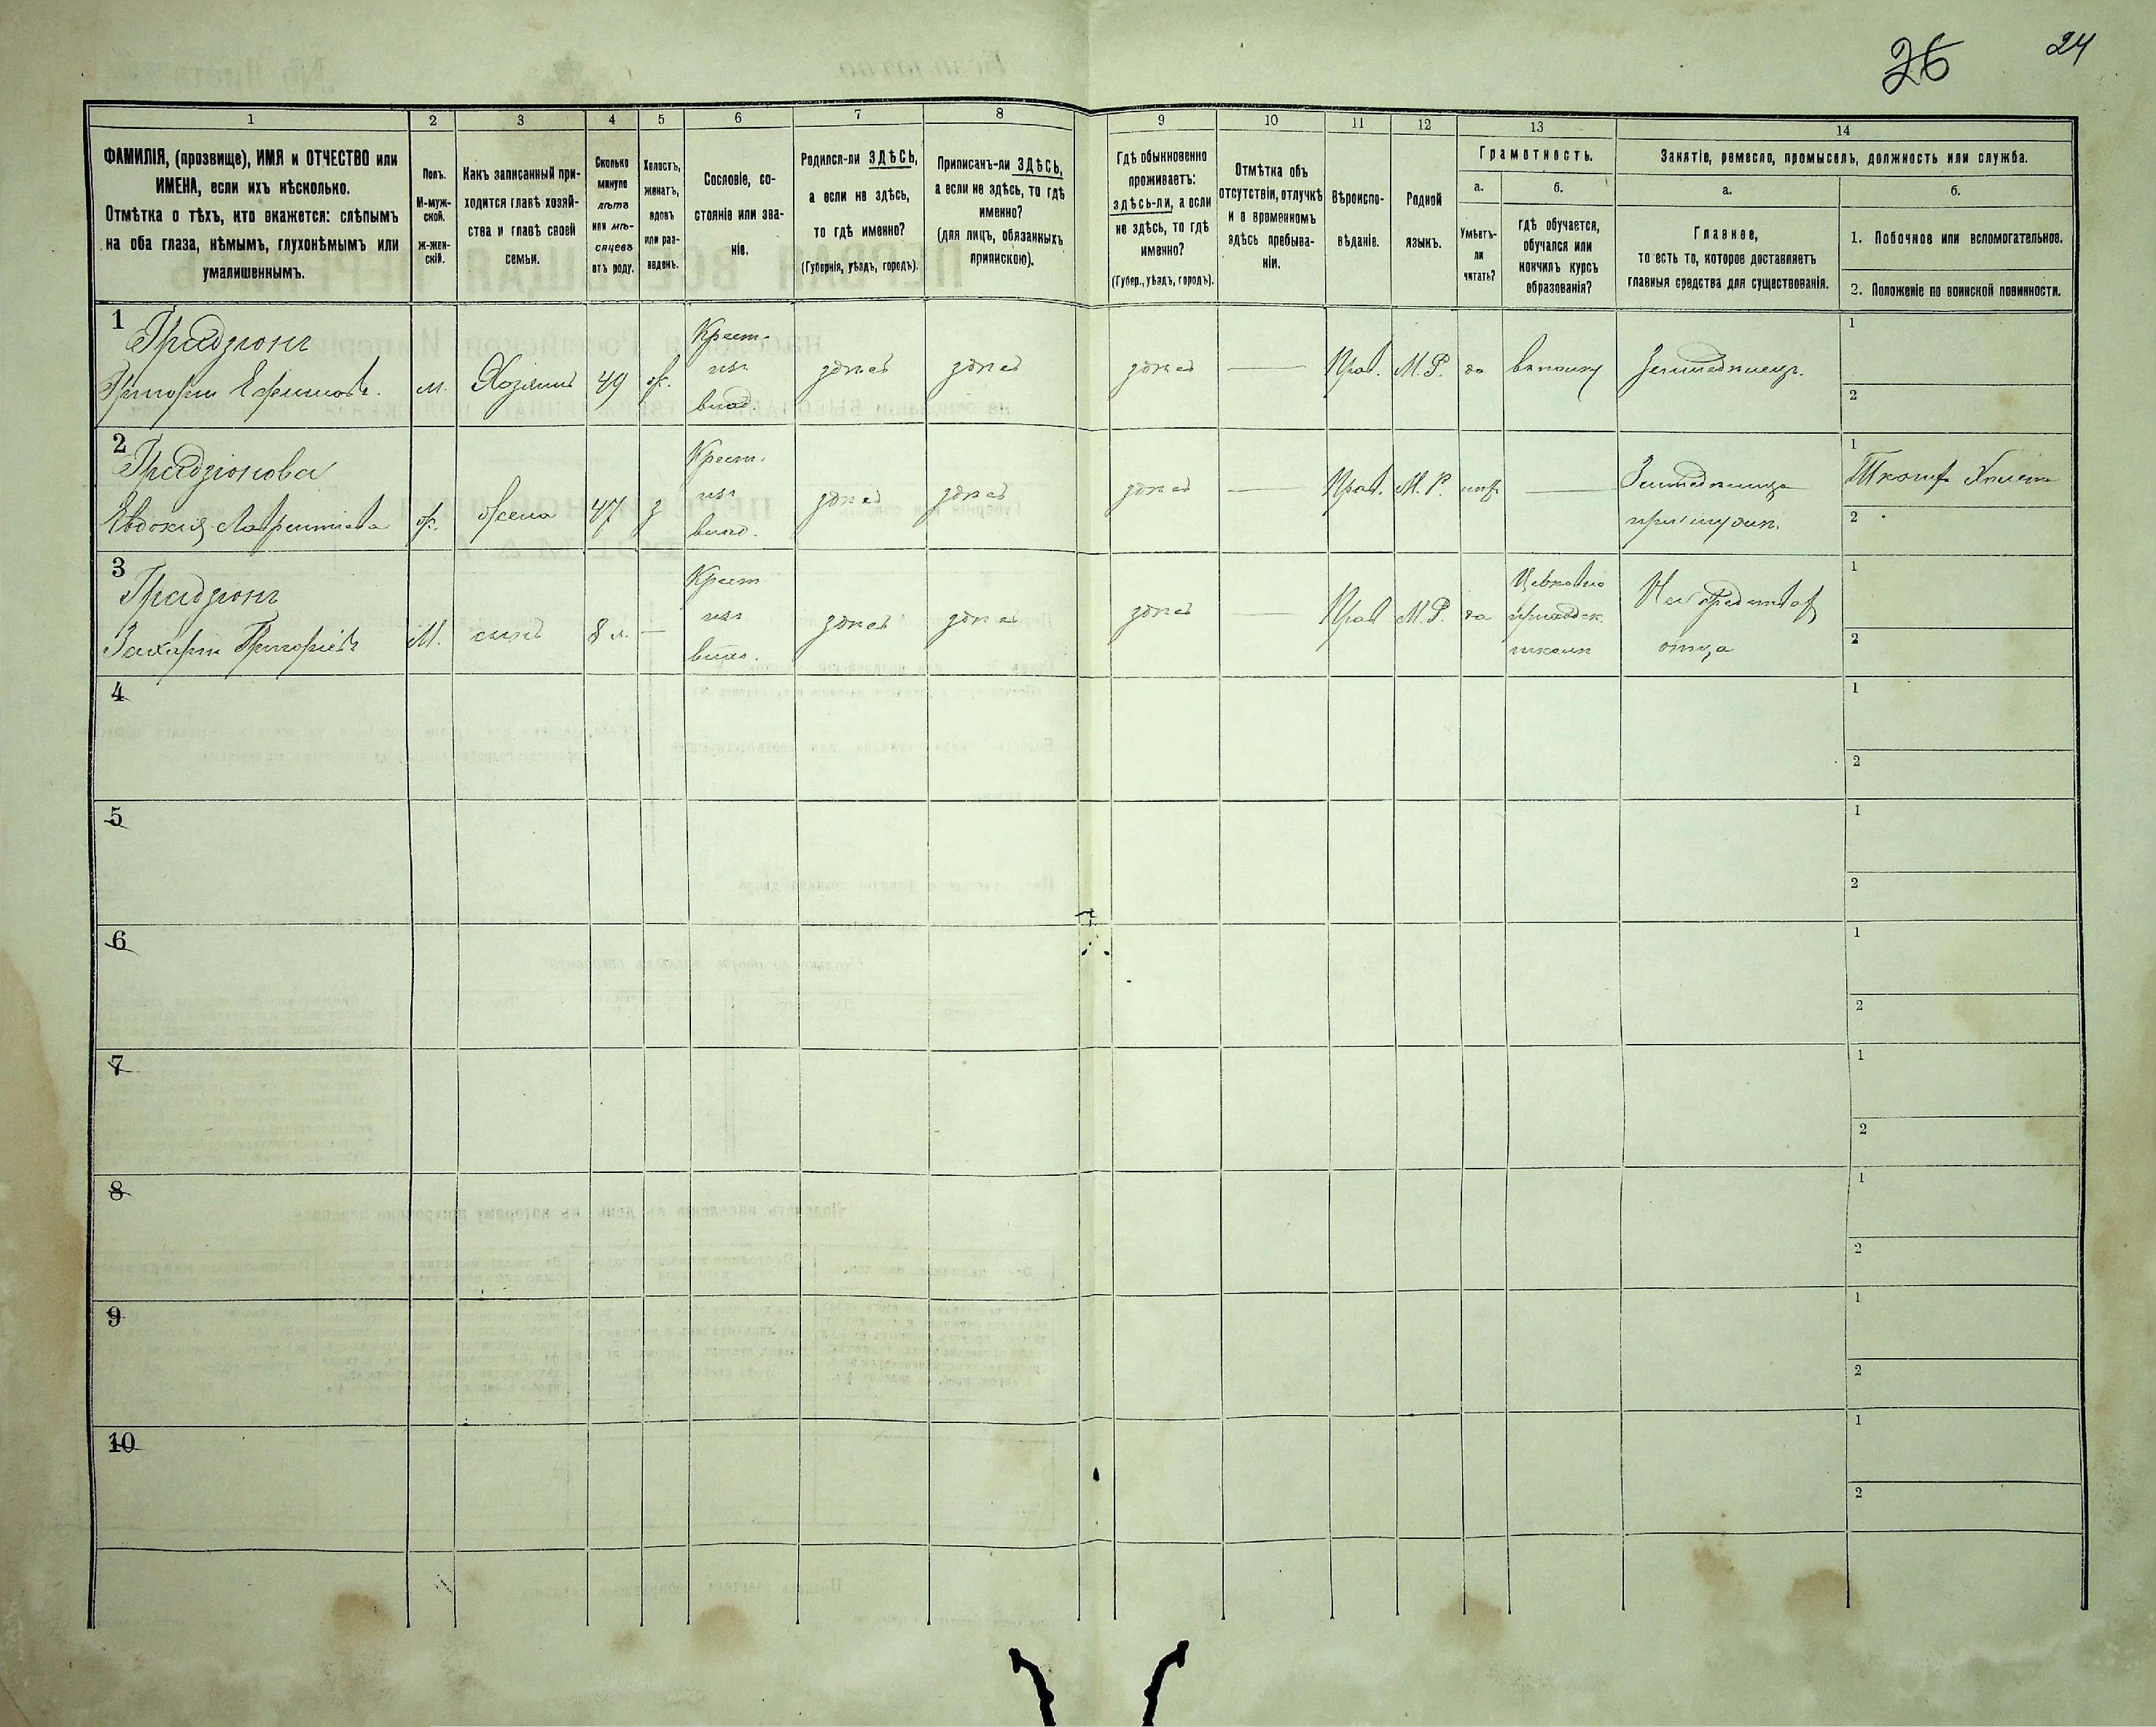 26 24
1 2 3 4 5 6 7 8 9 10 11 12 13 14
ФАМИЛІЯ, (прозвище), ИМЯ и ОТЧЕСТВО или
ИМЕНА, если ихъ нѣсколько.
Отмѣтка о тѣхъ, кто окажется: слѣпымъ
на оба глаза, нѣмымъ, глухонѣмымъ или
умалишеннымъ.
Полъ.
М-муж-
ской.
Ж-жен-
скій.
Какъ записанный при-
ходится главѣ хозяй-
ства и главѣ своей
семьи.
Сколько
минуло
лѣтъ
или мѣ-
сяцевъ
отъ роду.
Холостъ,
женатъ,
вдовъ
или раз-
веденъ.
Сословіе, со-
стояніе или зва-
ніе.
Родился-ли ЗДѢСЬ,
а если не здѣсь,
то гдѣ именно?
(Губернія, уѣздъ, городъ).
Приписанъ-ли ЗДѢСЬ,
а если не здѣсь, то гдѣ
именно?
(для лицъ, обязанныхъ
припискою).
Гдѣ обыкновенно
проживаетъ:
здѣсь-ли, а если
не здѣсь, то гдѣ
именно?
(Губер., уѣздъ, городъ).
Отмѣтка объ
отсутствіи, отлучкѣ
и о временномъ
здѣсь пребыва-
ніи.
Вѣроиспо-
вѣданіе.
Родной
языкъ.
Грамотность.
а.
Умѣетъ-
ли
читать?
б.
гдѣ обучается,
обучался или
кончилъ курсъ
образованія?
Занятіе, ремесло, промыселъ, должность или служба.
а.
Главное,
то есть то, которое доставляетъ
главныя средства для существованія.
б.
1. Побочное или вспомогательное.
2. Положеніе по воинской повинности.
1
Григорій Ефимовъ.
м. Хозяинъ 49 ж.
Крест.
изъ
влад.
здѣсь здѣсь здѣсь Прав. М.Р. да Земледѣлецъ.
1
2
2
Евдокія Лаврентіева
ж. жена 47 з
Крест.
изъ
влад.
здѣсь здѣсь здѣсь — Прав. М.Р. нѣтъ —
Земледѣлица
при мужѣ.
1
2
3
Захарій Григорьевъ
М. сынъ 8 л. —
Крест
изъ
влад.
здѣсь здѣсь здѣсь — Прав. М.Р. да
школѣ
отца
1
2
4 1
2
5 1
2
6 1
2
7 1
2
8 1
2
9 1
2
10 1
2